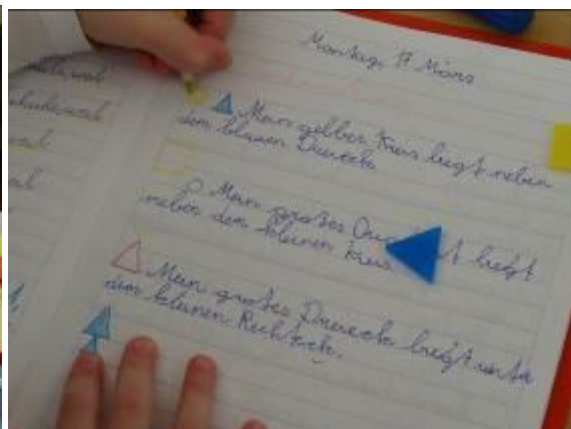 Montag, 17 März
Mein gelber Kreis liegt neben
dem blauen Dreieck
Mein großes liegt
neben dem kleinen Kreis
Mein großes Dreieck liegt unter
dem kleinen Rechteck.